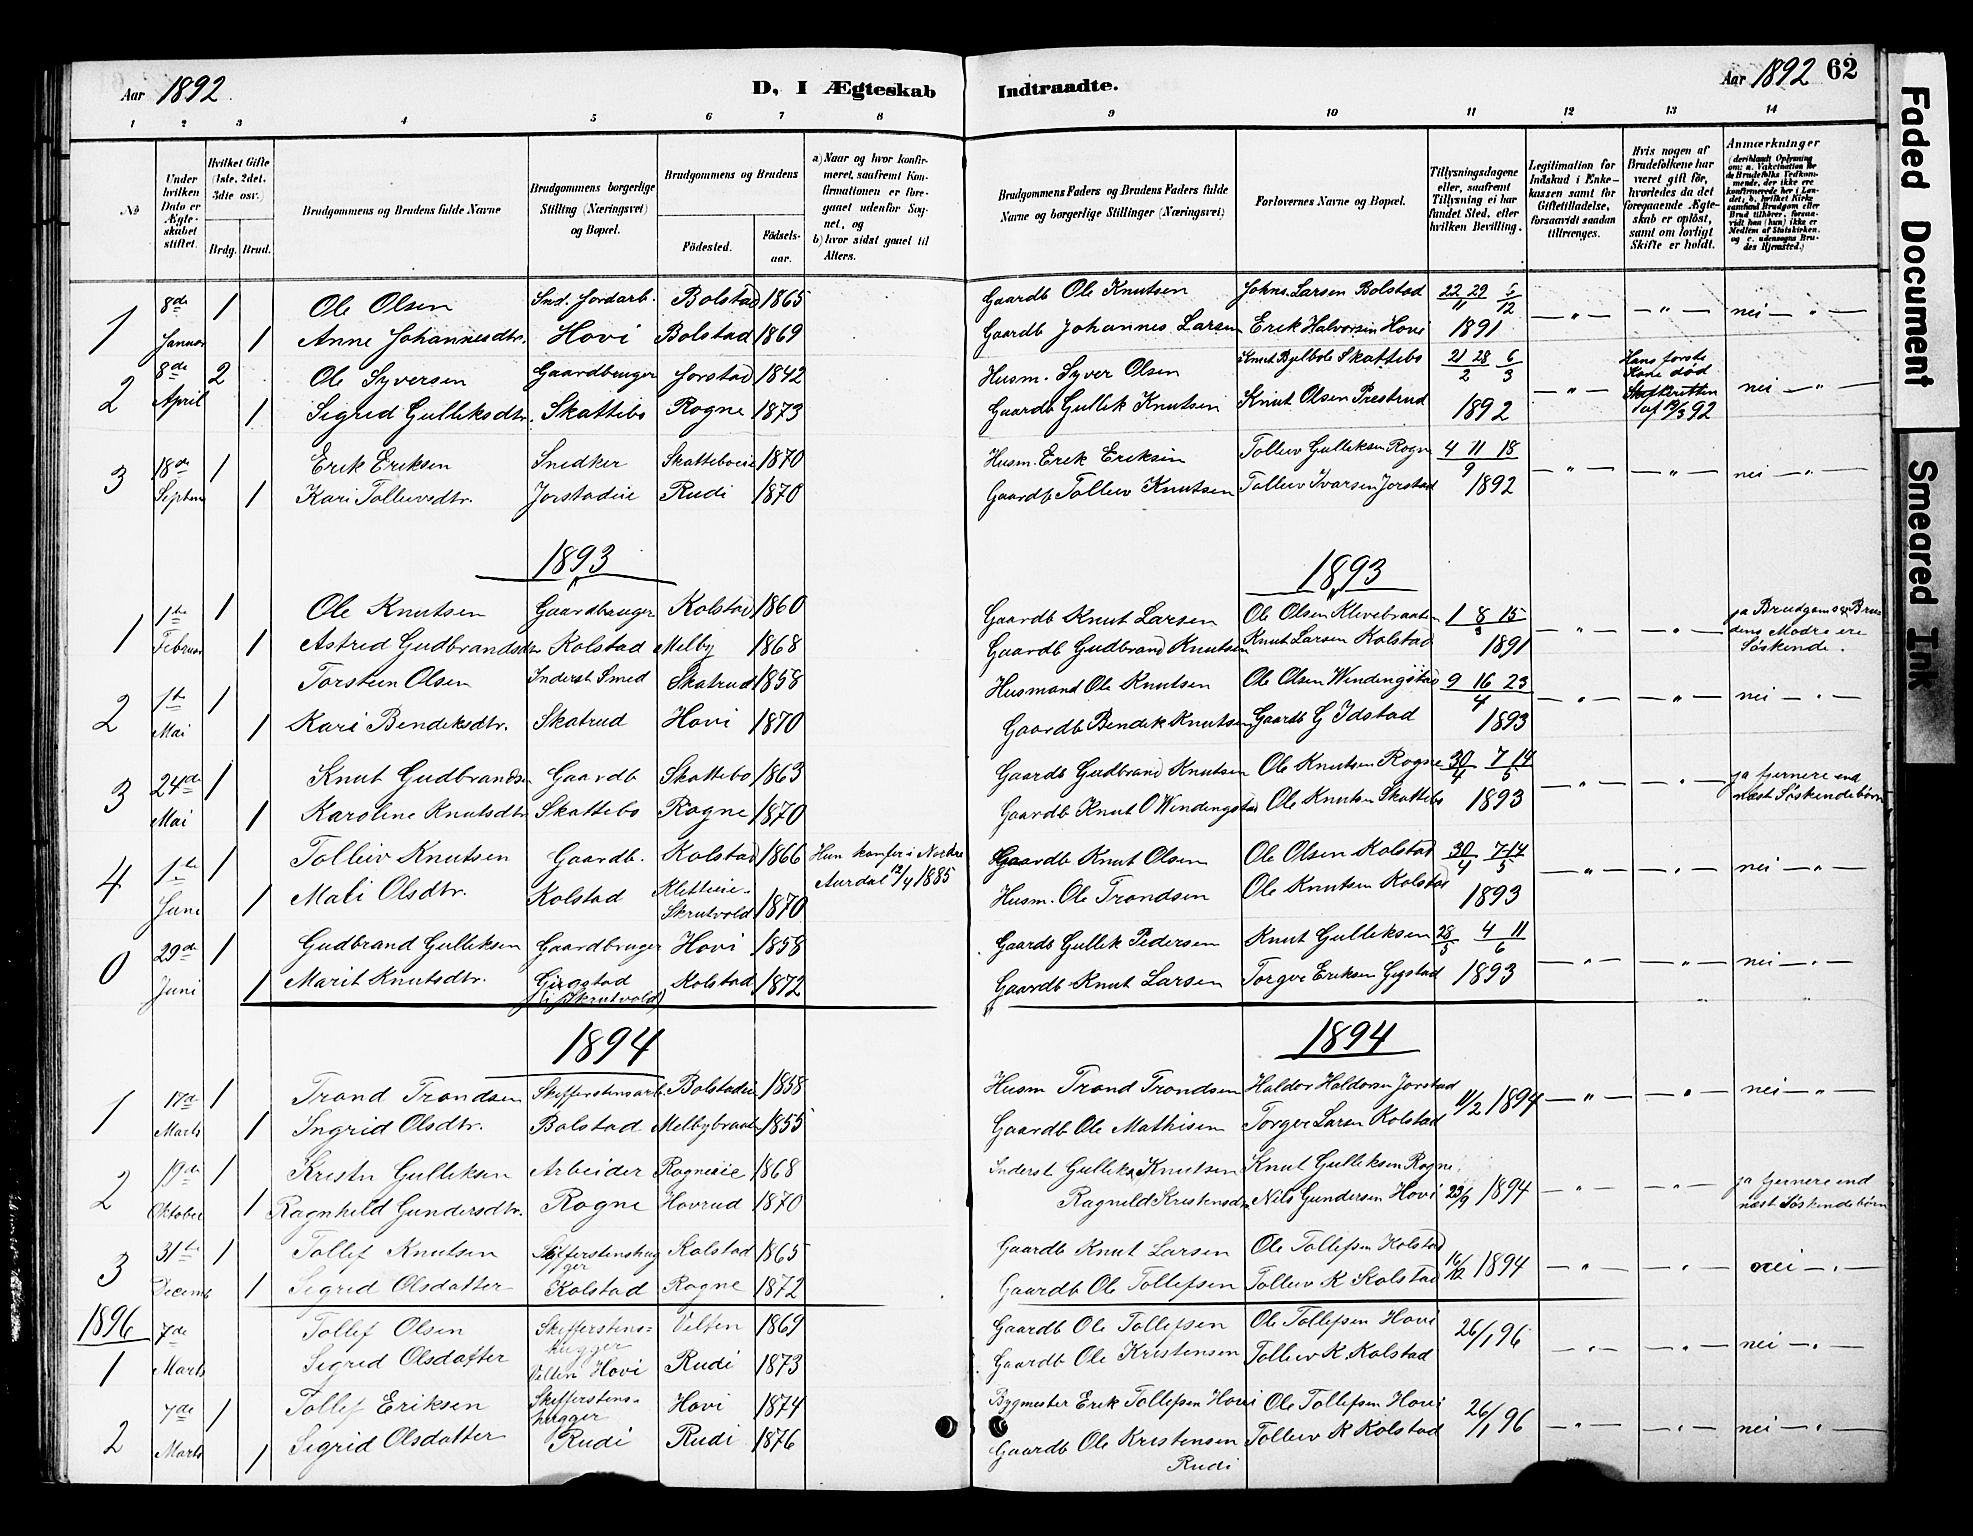 Aar 1892.
D, I Ægteskab
Indtraadte.
Aar 1892 62
1 2 3 4 5 6 7 8
9 10 11 12 13 14
№
Under hvilken Dato er Ægte-skabet stiftet.
Hvilket Gifte (1ste, 2det, 3die osv.)
Brdg. Brud.
Brudgommens og Brudens fulde Navne
Brudgommens borgerlige Stilling (Næringsvei) og Bopæl.
Brudgommens og Brudens
Fødested.
Fødsels-aar.
a) Naar og hvor konfir-meret, saafremt Kon-firmationen er fore-gaaet udenfor Sog-net, og
b) hvor sidst gaaet til Alters.
Brudgommens Faders og Brudens Faders fulde Navne og borgerlige Stillinger (Næringsvei)
Forlovernes Navne og Bopæl.
Tillysningsdagene eller, saafremt Tillysning ei har fundet Sted, efter hvilken Bevilling.
Legitimation for Indskud i Enke-kassen samt for Giftetilladelse, forsaavidt saadan tiltrænges.
Hvis nogen af Brudefolkene har været gift før, hvorledes da det foregaaende Ægte-skab er opløst, samt om lovligt Skifte er holdt.
Anmærkninger
1 8de Januar 1 Ole Olsen Ind. Jordarb. Bolstad 1865 Gaardb Ole Knutsen Johns. Larsen Bolstad 22 29/11 6/12 — " — — " — nei — " —
1 Anne Johannesdtr. Hovi Bolstad 1869 Gaardb Johannes Larsen Erik Halvorsen Hovi 1891
2 8de April 2 Ole Syversen Gaardbruger Jorstad 1842 Husm. Syver Olsen Knut Bjelbøle Skattebo 21 28/2 6/3 — " — Hans første Kone død Skifteretten af 19/3 92 nei — " —
1 Sigrid Gulliksdtr. Skattebo Rogne 1873 Gaardb Gullik Knutsen Knut Olsen Prestrud 1892
3 18de Septem 1 Erik Eriksen Snedker Skatteboeie 1870 Husm. Erik Eriksen Tolleiv Gulleksen Rogne 4 11 18/9 — " — — " — nei — " —
1 Kari Tolleivsdtr. Jorstadeie Rudi 1870 Gaardb Tolleiv Knutsen Tolleiv Ivarsen Jorstad 1892
1893
1893
1 1te Februar 1 Ole Knutsen Gaardbruger Kolstad 1860 Gaardb Knut Larsen Ole Olsen Klevebraaten 1 8 15 — " — — " — ja Brudgoms og Bru-dens Mødre ere Søskende.
1 Astrid Gudbrandsdtr Kolstad Melby 1868 Gaardb Gudbrand Knutsen Knut Larsen Kolstad 1891
2 1te Mai 1 Torstein Olsen Inderst Smed Skatrud 1858 Husmand Ole Knutsen Ole Olsen Windingstad 9 16 23/4 — " — — " — nei — " —
1 Kari Bendiksdtr. Skatrud Hovi 1870 Gaardb Bendik Knutsen Gaardb G Idstad 1893
3 24de Mai 1 Knut Gudbrandsen Gaardb Skattebo 1863 Gaardb Gudbrand Knutsen Ole Knutsen Rogne 30/4 7 14/5 — " — — " — ja fjernere end næst Søskendebørn
1 Karoline Knutsdtr Skattebo Rogne 1870 Gaardb Knut O Windingstad Ole Knutsen Skattebo 1893
4 1te Juni 1 Tolleiv Knutsen Gaardb. Kolstad 1866 Hun konfer i Nordre Aurdal 12/4 1885 Gaardb Knut Olsen Ole Olsen Kolstad 30/4 7 14/5 — " — — " — nei — " —
1 Mali Olsdtr. Kolstad Kletteie. Skrutvold 1870 Husm. Ole Trondsen Ole Knutsen Kolstad 1893
0 29de Juni 1 Gudbrand Gulliksen Gaardbruger Hovi 1858 Gaardb Gullik Pedersen Knut Gulliksen 28/5 4 11/6 — " — — " — nei — " —
1 Marit Knutsdtr. Gigstad (i Skrutvold) Kolstad 1872 Gaardb Knut Larsen Torger Eriksen Gigstad 1893
1894
1894
1 17de Marts 1 Trond Trondsen Skifferstensarb Bolstadeie 1858 Husm Trond Trondsen Haldor Haldorsen Jorstad 11/2 1894 — " — — " — nei — " —
1 Ingrid Olsdtr. Bolstad Melbybraaten 1855 Gaardb Ole Mathisen Torger Larsen Kolstad
2 19de Oktober 1 Kristn Gulliksen Arbeider Rogneeie 1868 Inderst Gullik Knutsen Knut Gulliksen Rogne. 23/9 1894 — " — — " — ja fjernere end næst Søskendebørn
1 Ragnhild Gundersdtr. Rogne Hovrud 1870 Ragnild Kristensdtr Nils Gundersen Hovi
3 31te Decemb 1 Tollef Knutsen Skifferstenshugger Kolstad 1865 Gaardb Knut Larsen Ole Tollefsen Kolstad 16/12 1894 — " — — " — nei — " —
1 Sigrid Olsdatter Kolstad Rogne 1872 Gaardb Ole Tollefsen Tolleiv K Kolstad
1896
1 7de Marts Tollef Olsen Skifferstens-hugger Velten 1869 Gaardb Ole Tollefsen Ole Tollefsen Hovi 26/1 96 — " — — " — nei — " —
Sigrid Olsdatter Velten Hovi Rudi 1873 Gaardb Ole Kristensen Tolleiv K. Kolstad
2 7de Marts 1 Tollef Eriksen Skifferstens-hugger Hovi 1874 Bygmester Erik Tollefsen Hovi Ole Tollefsen Hovi 26/1 96 — " — — " — nei — " —
1 Sigrid Olsdatter Rudi Rudi 1876 Gaardb Ole Kristensen Rudi Tolleiv K Kolstad
Faded Document
Smeared Ink